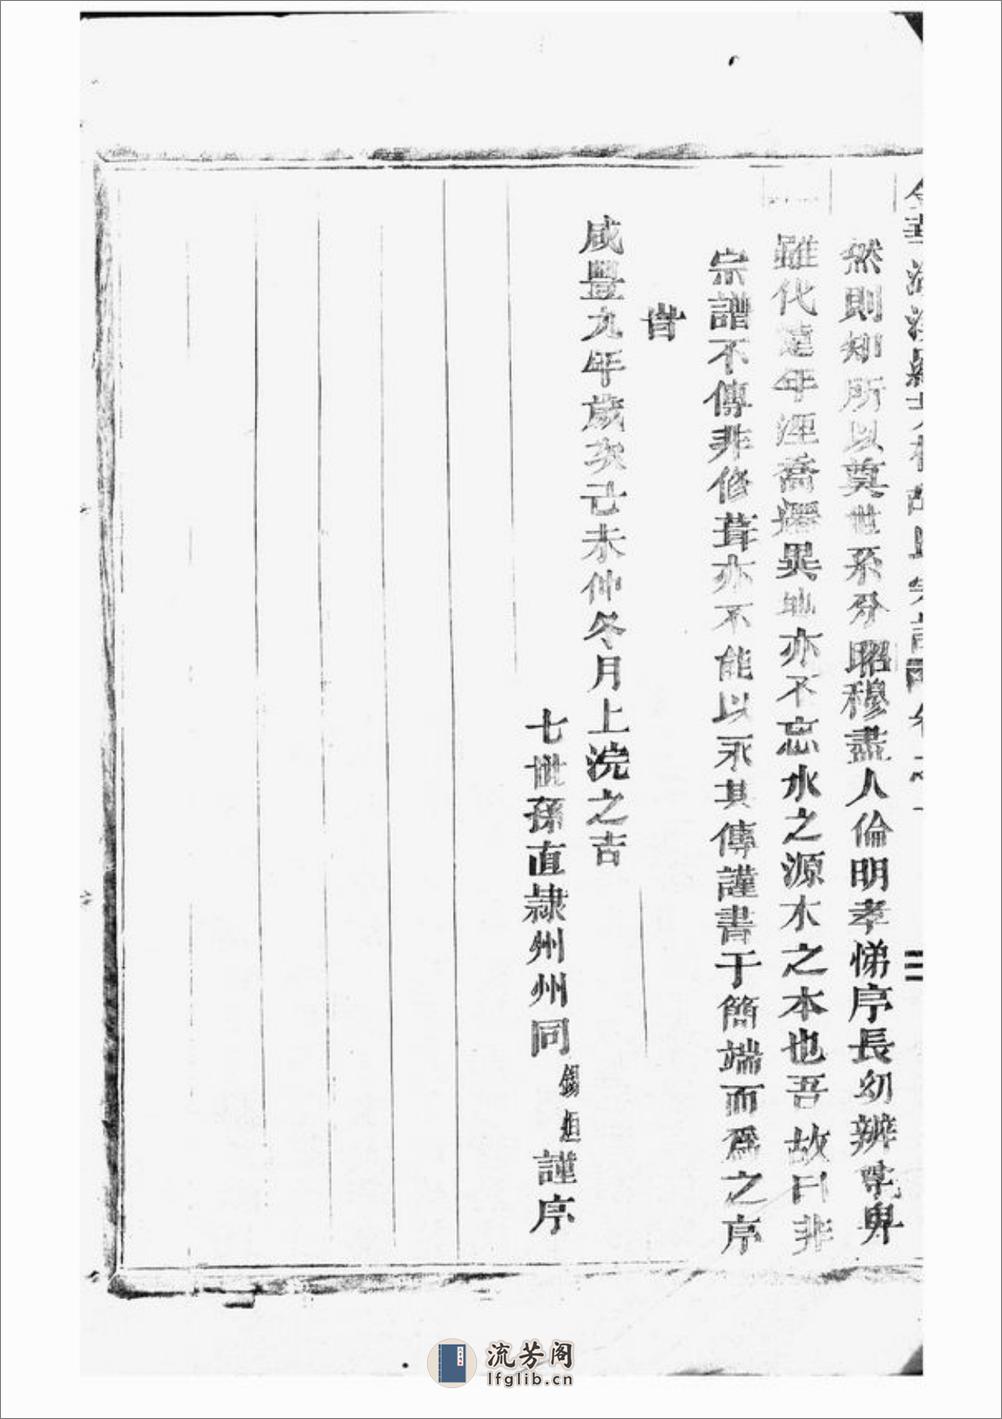 然則知所以奠世系分昭穆盡人倫明孝悌序長幼辨尊卑
雖代遠年湮喬遷異地亦不忘水之源木之本也吾故曰非
宗譜不傳非修葺亦不能以永其傳謹書于簡端而為之序
旹
咸豐九年歲次己未仲冬月上浣之吉
七世孫直隸州州同錫恒謹序
流芳阁
lfglib.cn